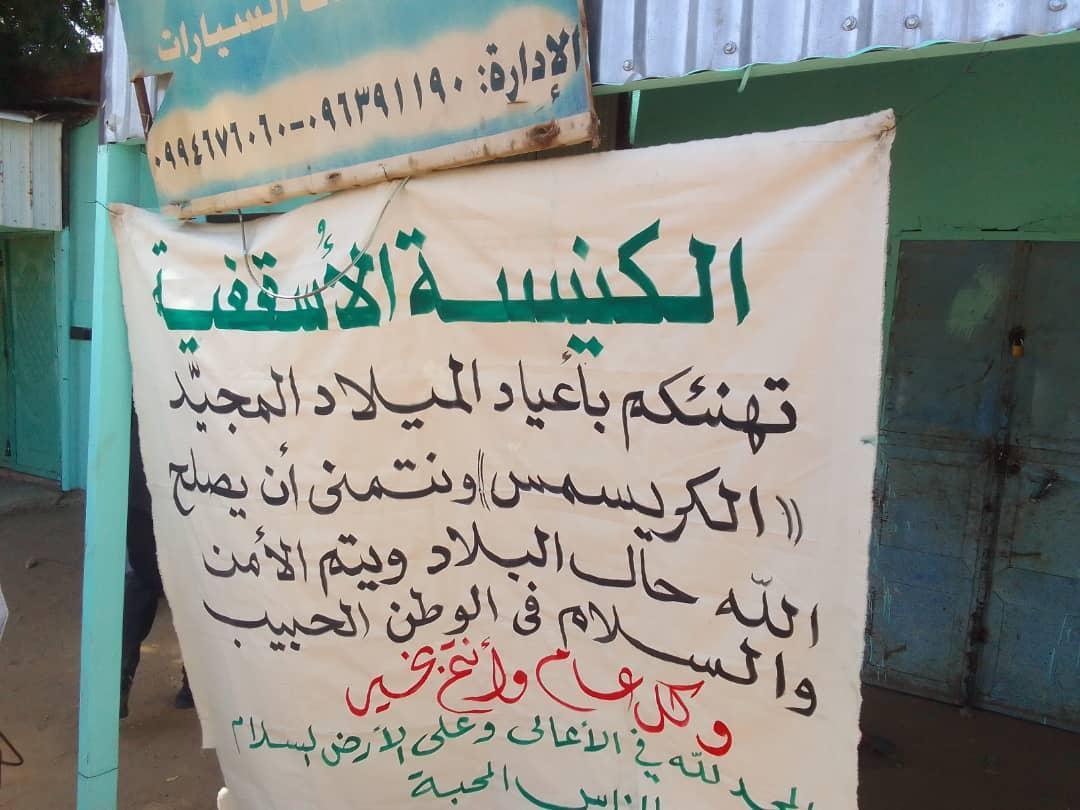 السيارات
الإدارة: ٠٩٦٣٩١١٩٠-٠٩٩٤٦٧٦٠٦٠
الكنيسة الأُسقفية
تهنئكم بأعياد الميلاد المجيّد
((الكريسمس)) ونتمنى أن يصلح
الله حال البلاد ويتم الأمن
والسلام في الوطن الحبيب
وكل عام وأنتم بخير
المجد لله في الأعالى وعلى الأرض السلام
المحبة